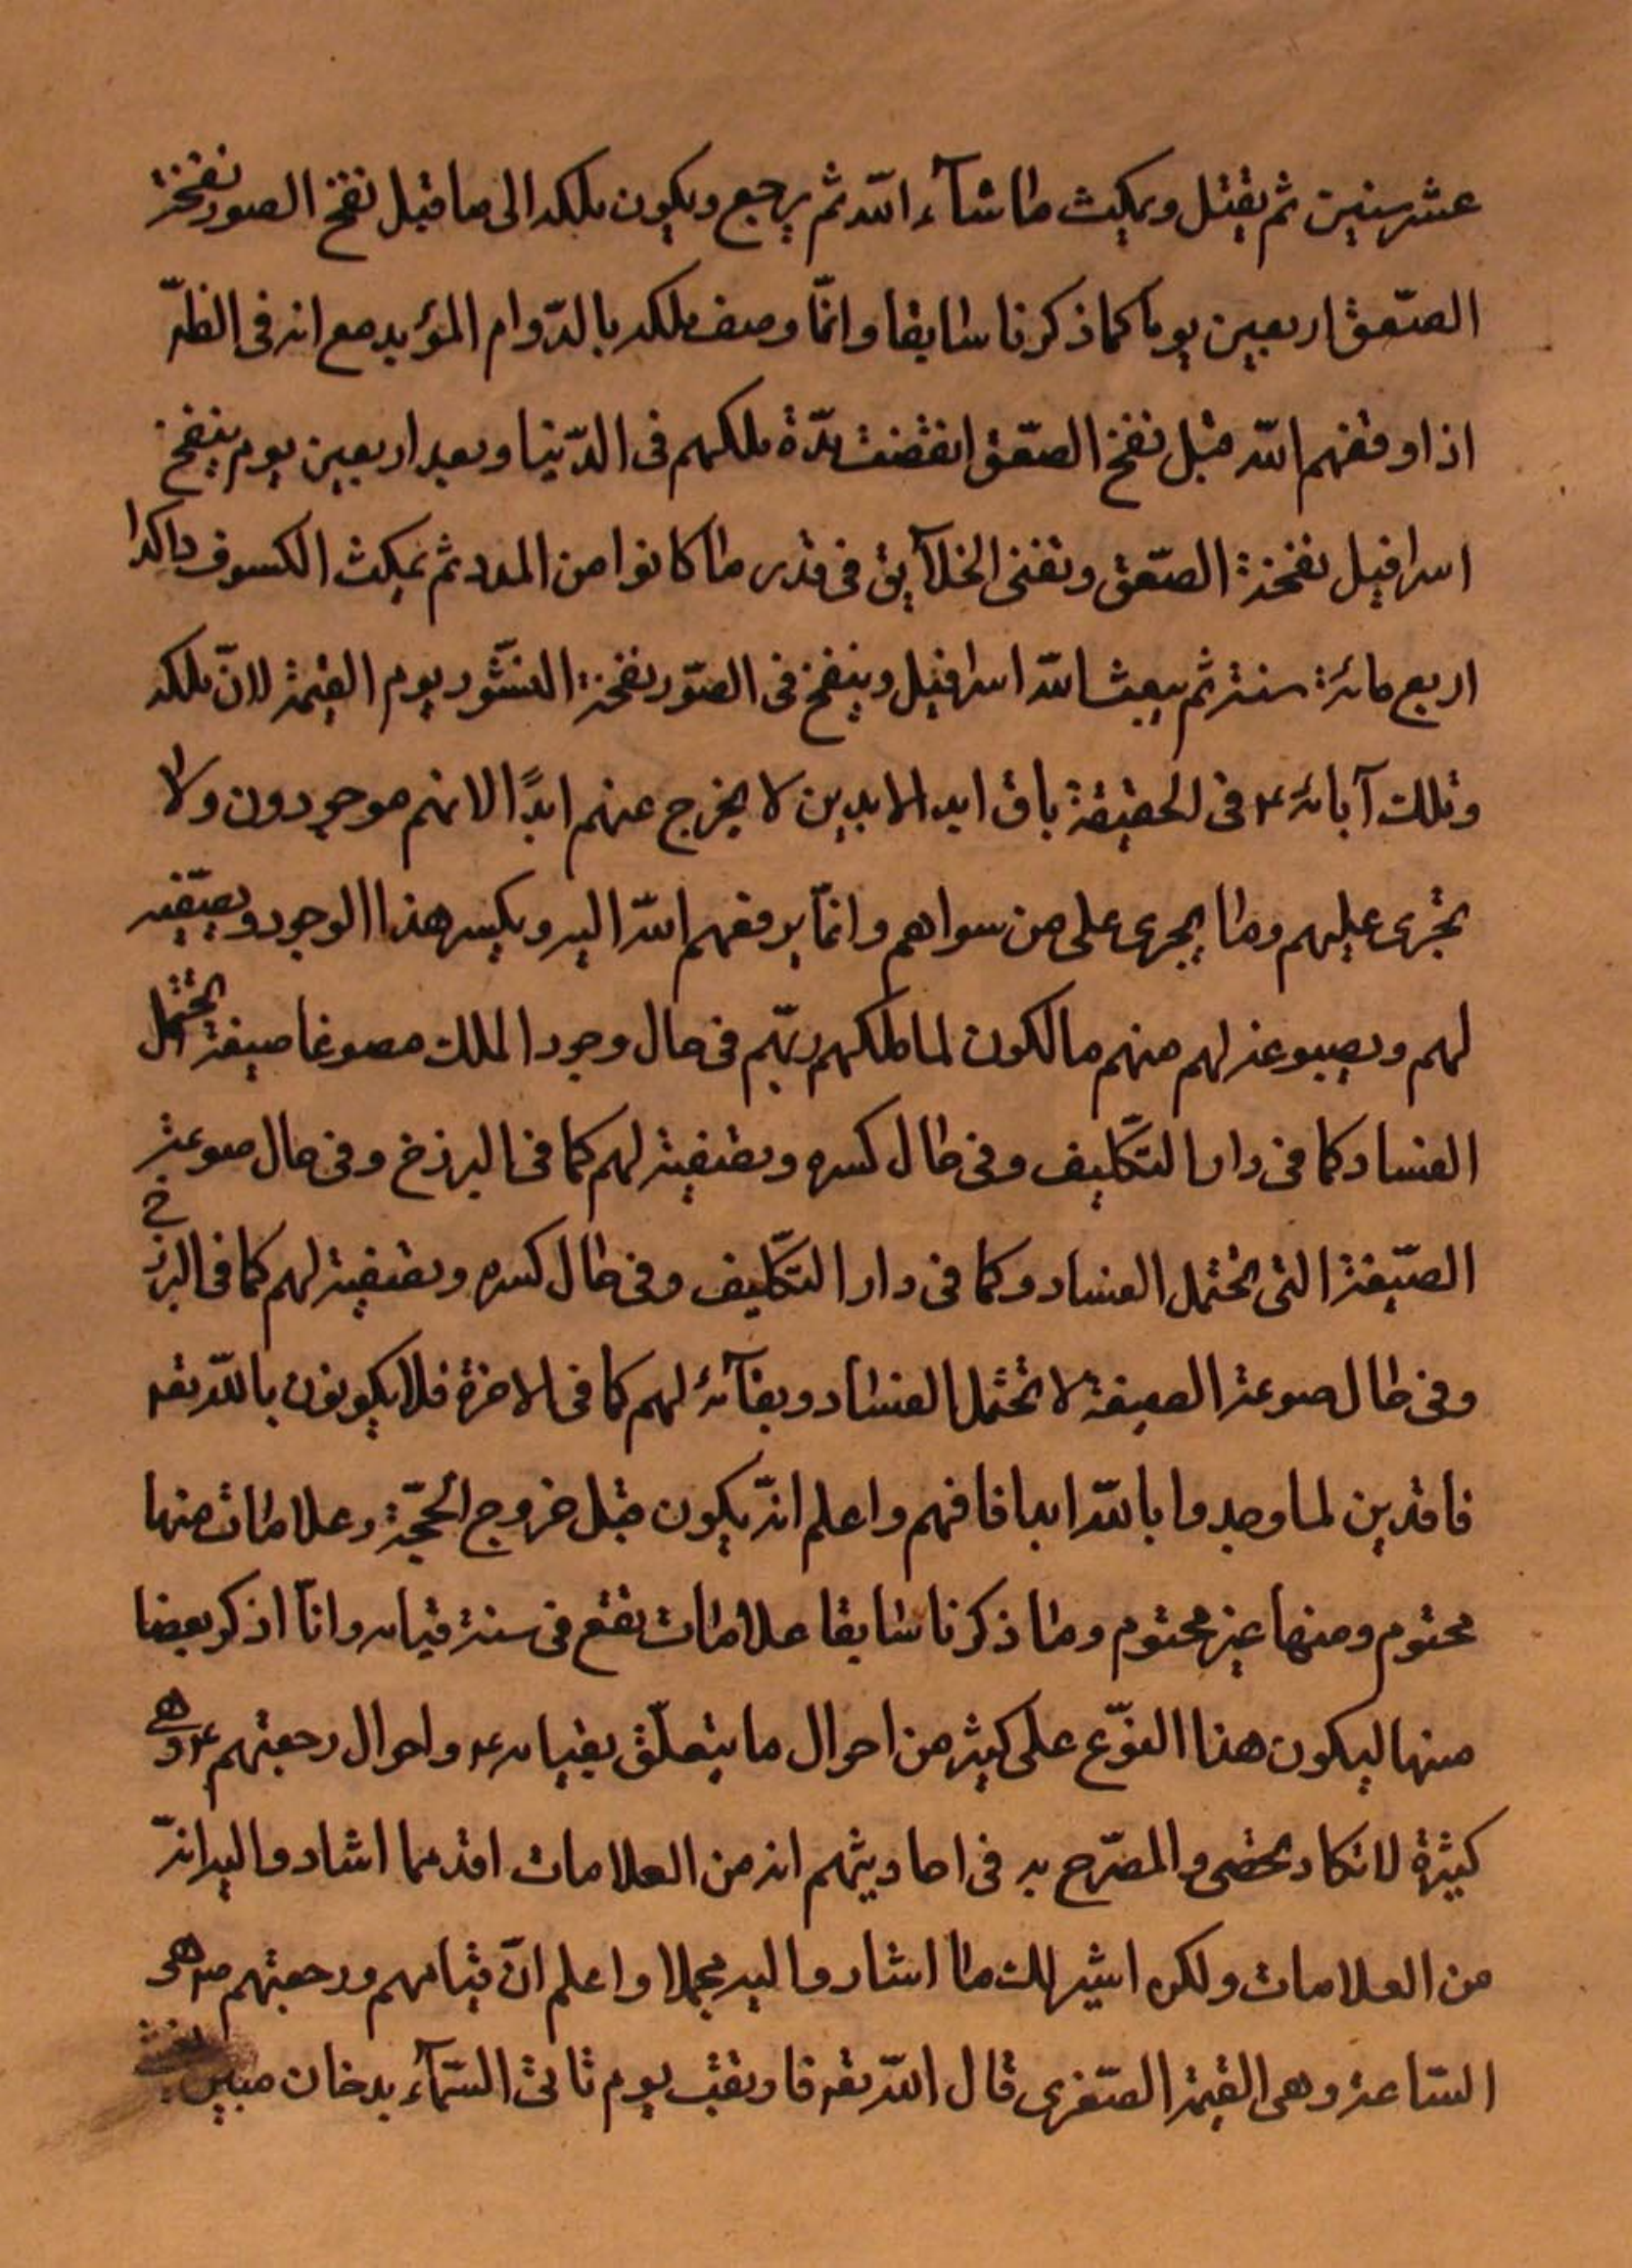 عشر سنين ثم يقتل ويمكث ما شآء الله ثم يرجع ويكون ملكه الى ما قبل نفخ الصور نفخة
الصّعق اربعين يوما كما ذكرنا سابقا وانّما وصف ملكه بالدّوام المؤبد مع انه فى الظّ
اذا رفعهم الله قبل نفخ الصّعق انقضت مدّة ملكهم فى الدّنيا وبعد اربعين يوم ينفخ
اسرافيل نفخة الصّعق وتفنى الخلآيق فى قدر ما كانوا من المدد ثم يمكث الكسوف راكدا
اربع مائة سنة ثم يبعث الله اسرافيل وينفخ فى الصّور نفخة النشّور يوم القيمة لانّ ملكه
وملك آبائه ع فى الحقيقة باق ابد الابدين لا يخرج عنهم ابدًا لانهم موجودون ولا
يجرى عليهم وما يجرى على من سواهم وانمّا يرفعهم الله اليه ويكسر هذا الوجود ويصّفيه
لهم ويصوغه لهم منهم مالكون لما ملكهم ربّهم فى حال وجود الملك مصوغا صيغة تحتمل
الفساد كما فى دار التّكليف وفى حال كسره وتصفيته لهم كما فى البرزخ وفى حال صوغه
الصّيغة التى تحتمل الفساد وكما فى دار التّكليف وفى حال كسره وتصفيته لهم كما فى البرزخ
وفى حال صوغه الصيغة لا تحتمل الفساد وبقآئه لهم كما فى الاخرة فلا يكونون بالله تعه
فاقدين لما وجدوا بالله ابدا فافهم واعلم انّه يكون قبل خروج الحجّة ع علامات منها
محتوم ومنها غير محتوم وما ذكرنا سابقا علامات تقع فى سنة قيامه وانآ اذكر بعضا
منها ليكون هذا النوّع على كثير من احوال ما يتعلّق بقيامه ع واحوال رجعتهم ع وهى
كثيرة لا تكاد تحصى والمصّرح به فى احاديثهم انه من العلامات اقل مما اشاروا اليه انّه
من العلامات ولكن اشير لك ما اشاروا اليه مجملا واعلم انّ قيامهم ورجعتهم ع هى
السّاعة وهى القيمة الصّغرى قال الله تعه فارتقب يوم تاتى السّمآء بدخان مبين